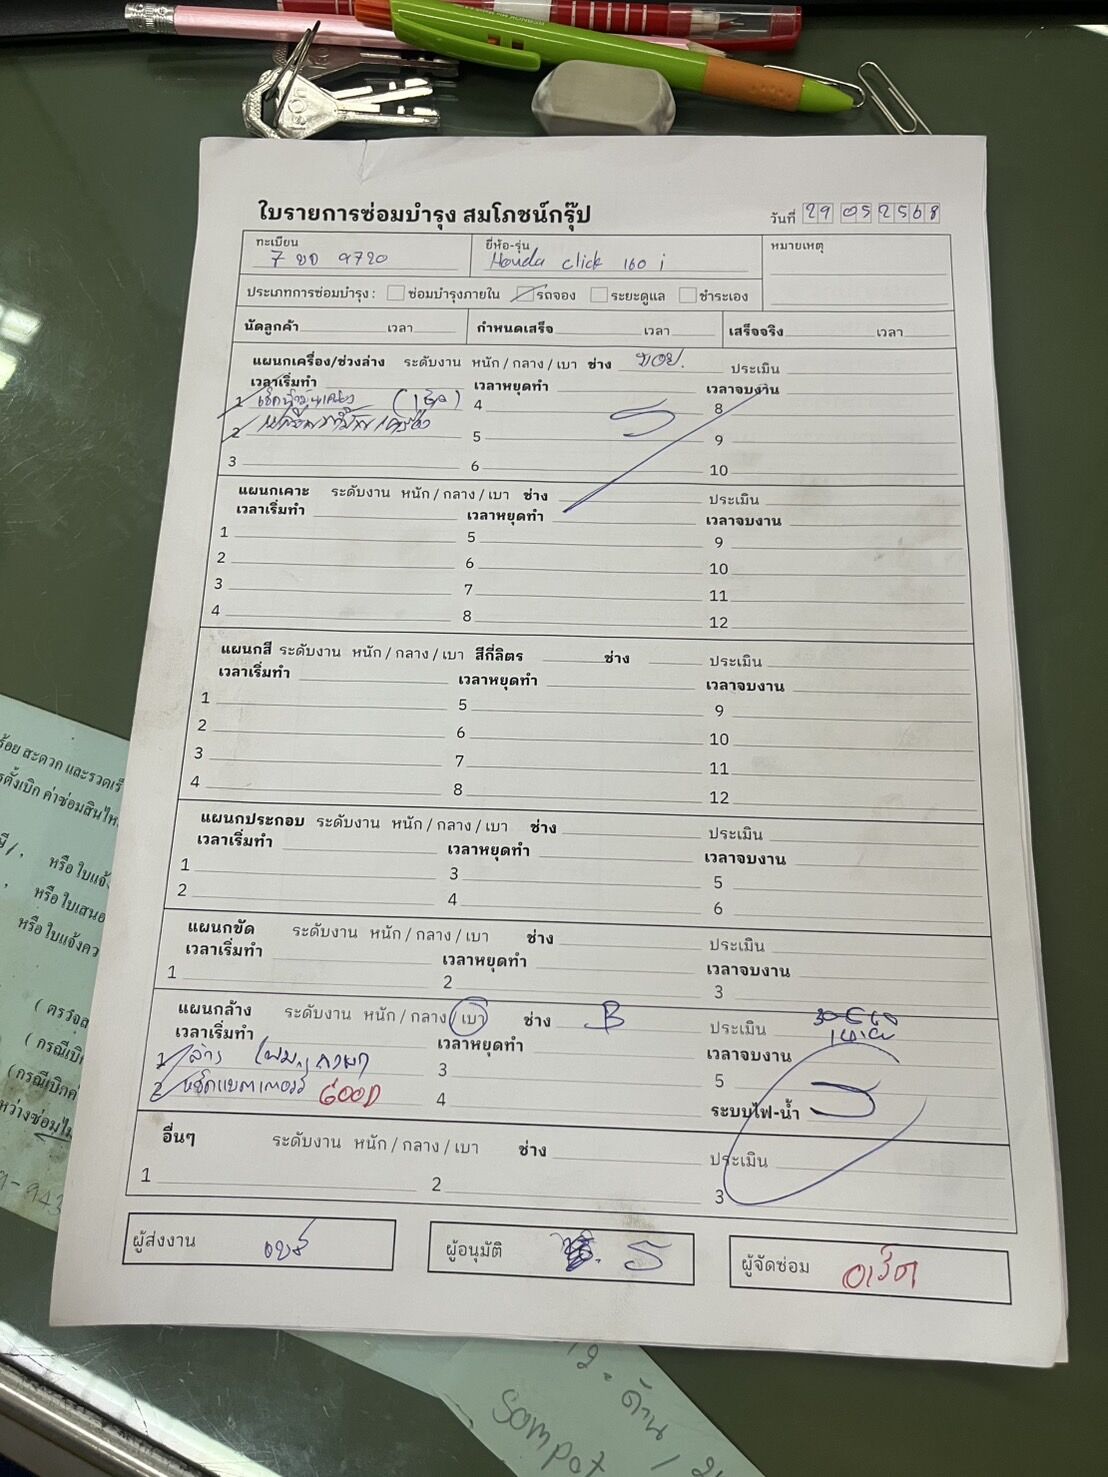 ใบรายการซ่อมบำรุง สมโภชน์กรุ๊ป
วันที่ 29 05 2568
ทะเบียน 7 ขด 9720
ยี่ห้อ-รุ่น Honda click 160 i
หมายเหตุ
ประเภทการซ่อมบำรุง : ซ่อมบำรุงภายใน รถจอง ระยะดูแล ชำระเอง
นัดลูกค้า เวลา กำหนดเสร็จ เวลา เสร็จจริง เวลา
แผนกเครื่อง/ช่วงล่าง ระดับงาน หนัก / กลาง / เบา ช่าง ประเมิน
เวลาเริ่มทำ เวลาหยุดทำ เวลาจบงาน
1 4 8
2 เปลี่ยน 5 9
3 6 10
แผนกเคาะ ระดับงาน หนัก / กลาง / เบา ช่าง ประเมิน
เวลาเริ่มทำ เวลาหยุดทำ เวลาจบงาน
1 5 9
2 6 10
3 7 11
4 8 12
แผนกสี ระดับงาน หนัก / กลาง / เบา สีกี่ลิตร ช่าง ประเมิน
เวลาเริ่มทำ เวลาหยุดทำ เวลาจบงาน
1 5 9
2 6 10
3 7 11
4 8 12
แผนกประกอบ ระดับงาน หนัก / กลาง / เบา ช่าง ประเมิน
เวลาเริ่มทำ เวลาหยุดทำ เวลาจบงาน
1 3 5
2 4 6
แผนกขัด ระดับงาน หนัก / กลาง / เบา ช่าง ประเมิน
เวลาเริ่มทำ เวลาหยุดทำ เวลาจบงาน
1 2 3
แผนกล้าง ระดับงาน หนัก / กลาง / เบา ช่าง B ประเมิน
เวลาเริ่มทำ เวลาหยุดทำ เวลาจบงาน
1 ล้าง 3 5
2 เช็คแบตเตอรี่ GOOD 4 ระบบไฟ-น้ำ
อื่นๆ ระดับงาน หนัก / กลาง / เบา ช่าง ประเมิน
1 2 3
ผู้ส่งงาน
ผู้อนุมัติ
ผู้จัดซ่อม
ร้อย สะดวก และรวดเร็
หรือ ใบแจ้
หรือ ใบเสนอ
หรือ ใบแจ้งคว
( ตรวจส
( กรณีเบิก
(กรณีเบิกค่
หว่างซ่อมไม่
12. ด้าน /
Sompot